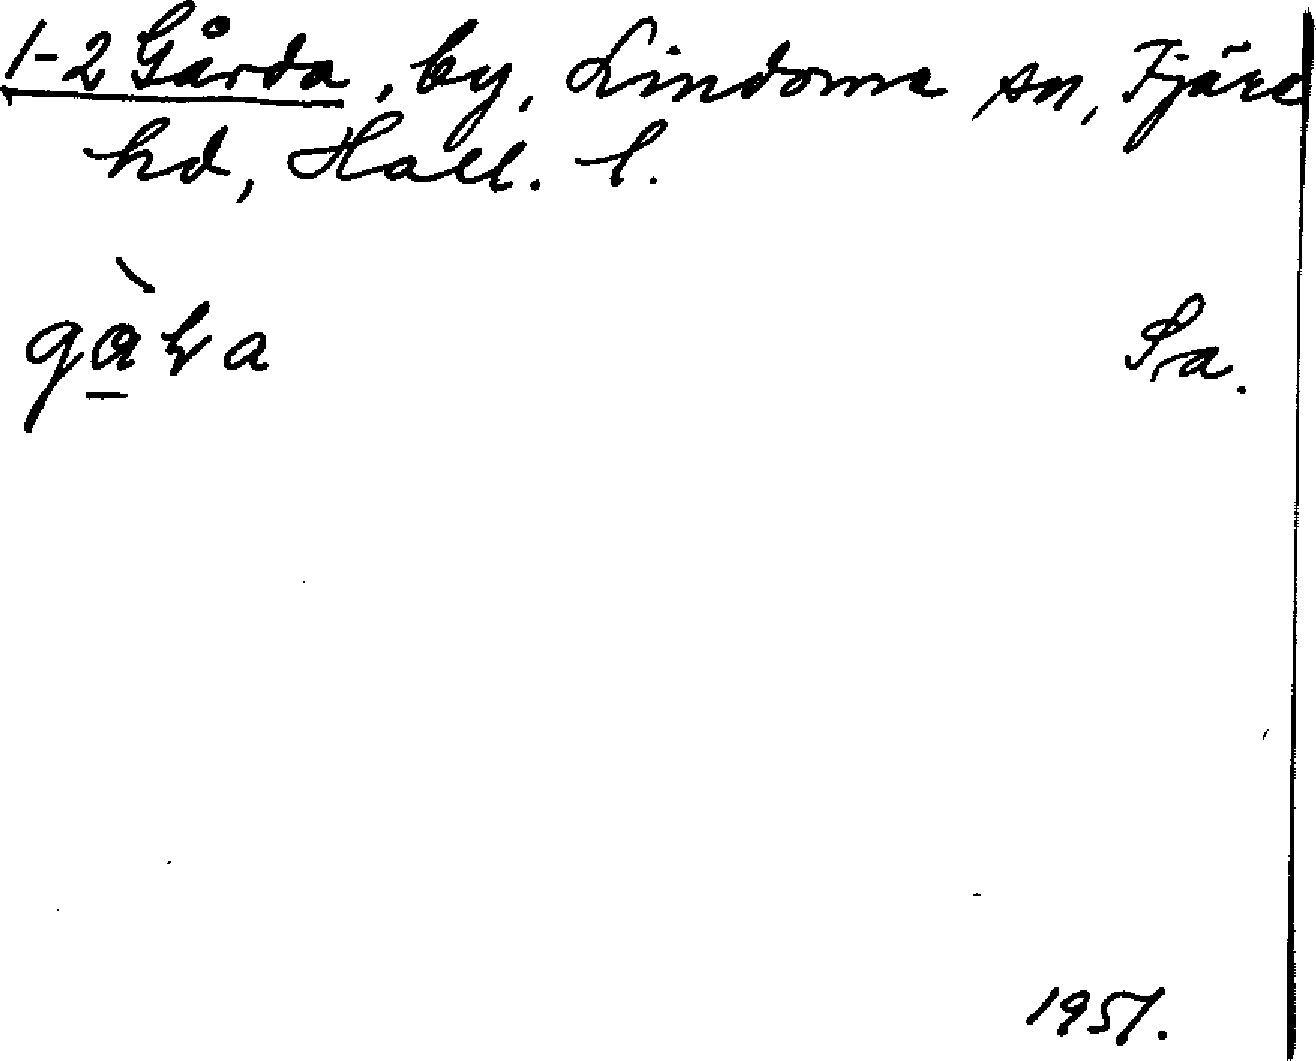 1-2 Gårda, by, Lindome sn, Fjäre
hd, Hall. l.
Sa.
1951.